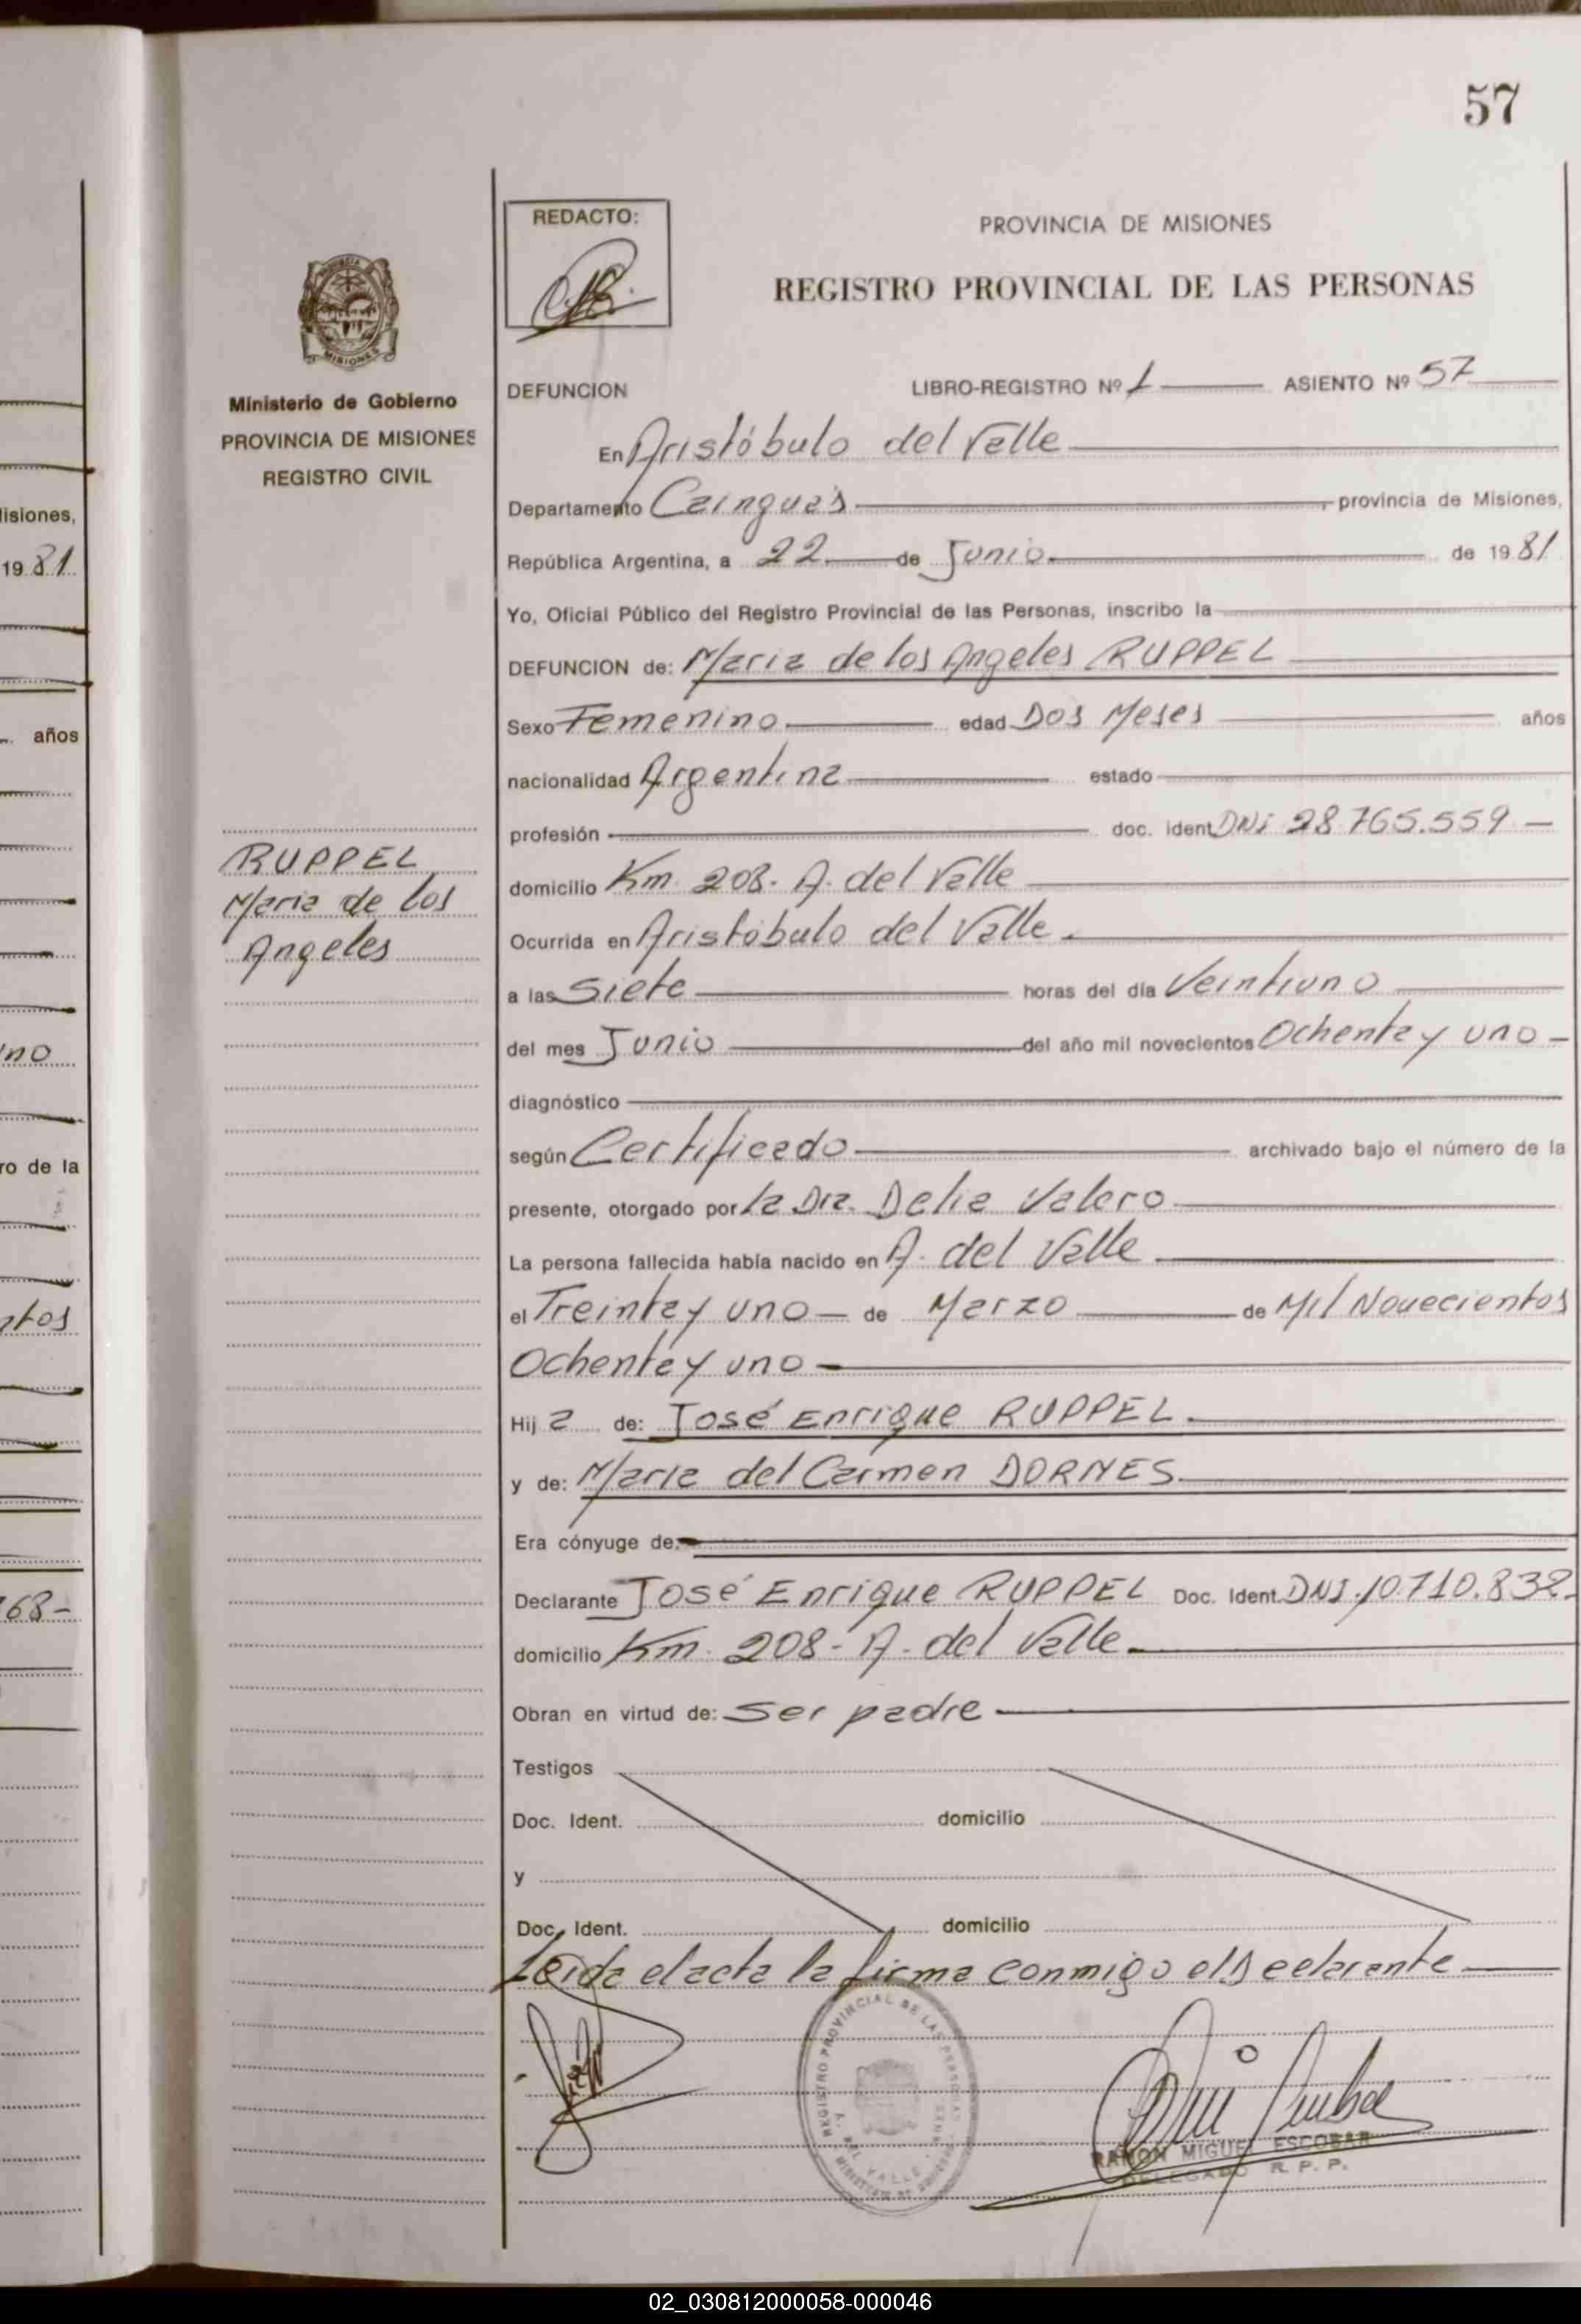 57
REDACTO:
PROVINCIA DE MISIONES
REGISTRO PROVINCIAL DE LAS PERSONAS
PROVINCIA
MISIONES
Ministerio de Gobierno
PROVINCIA DE MISIONES
REGISTRO CIVIL
DEFUNCION LIBRO-REGISTRO Nº 1 ASIENTO Nº 57
En Aristóbulo del Valle
Departamento Cainguás provincia de Misiones,
República Argentina, a 22 de Junio de 1981
Yo, Oficial Público del Registro Provincial de las Personas, inscribo la
DEFUNCION de: Maria de los Angeles RUPPEL
Sexo Femenino edad Dos Meses años
nacionalidad Argentina estado
profesión doc. ident DNi 28.765.559
domicilio Km 208. A. del Valle
Ocurrida en Aristóbulo del Valle
a las Siete horas del día Veintiuno
del mes Junio del año mil novecientos Ochenta y uno
diagnóstico
según Certificado archivado bajo el número de la
presente, otorgado por la Dra. Delia Valero
La persona fallecida había nacido en A. del Valle
el Treinta y uno de Marzo de Mil Novecientos
Ochenta y uno
Hija de: José Enrique RUPPEL
y de: Maria del Carmen DORNES
Era cónyuge de:
Declarante José Enrique RUPPEL Doc. Ident. DNI. 10.710.832
domicilio Km. 208 - A. del Valle
Obran en virtud de: Ser padre
Testigos
Doc. Ident. domicilio
y
Doc. Ident. domicilio
Leida el acta la firma conmigo el Declarante
RUPPEL
Maria de los
Angeles
REGISTRO PROVINCIAL DE LAS PERSONAS
A. DEL VALLE
RAMON MIGUEL ESCOBAR
DELEGADO R. P. P.
Misiones,
1981
años
uno
ro de la
ntos
168-
02_030812000058-000046